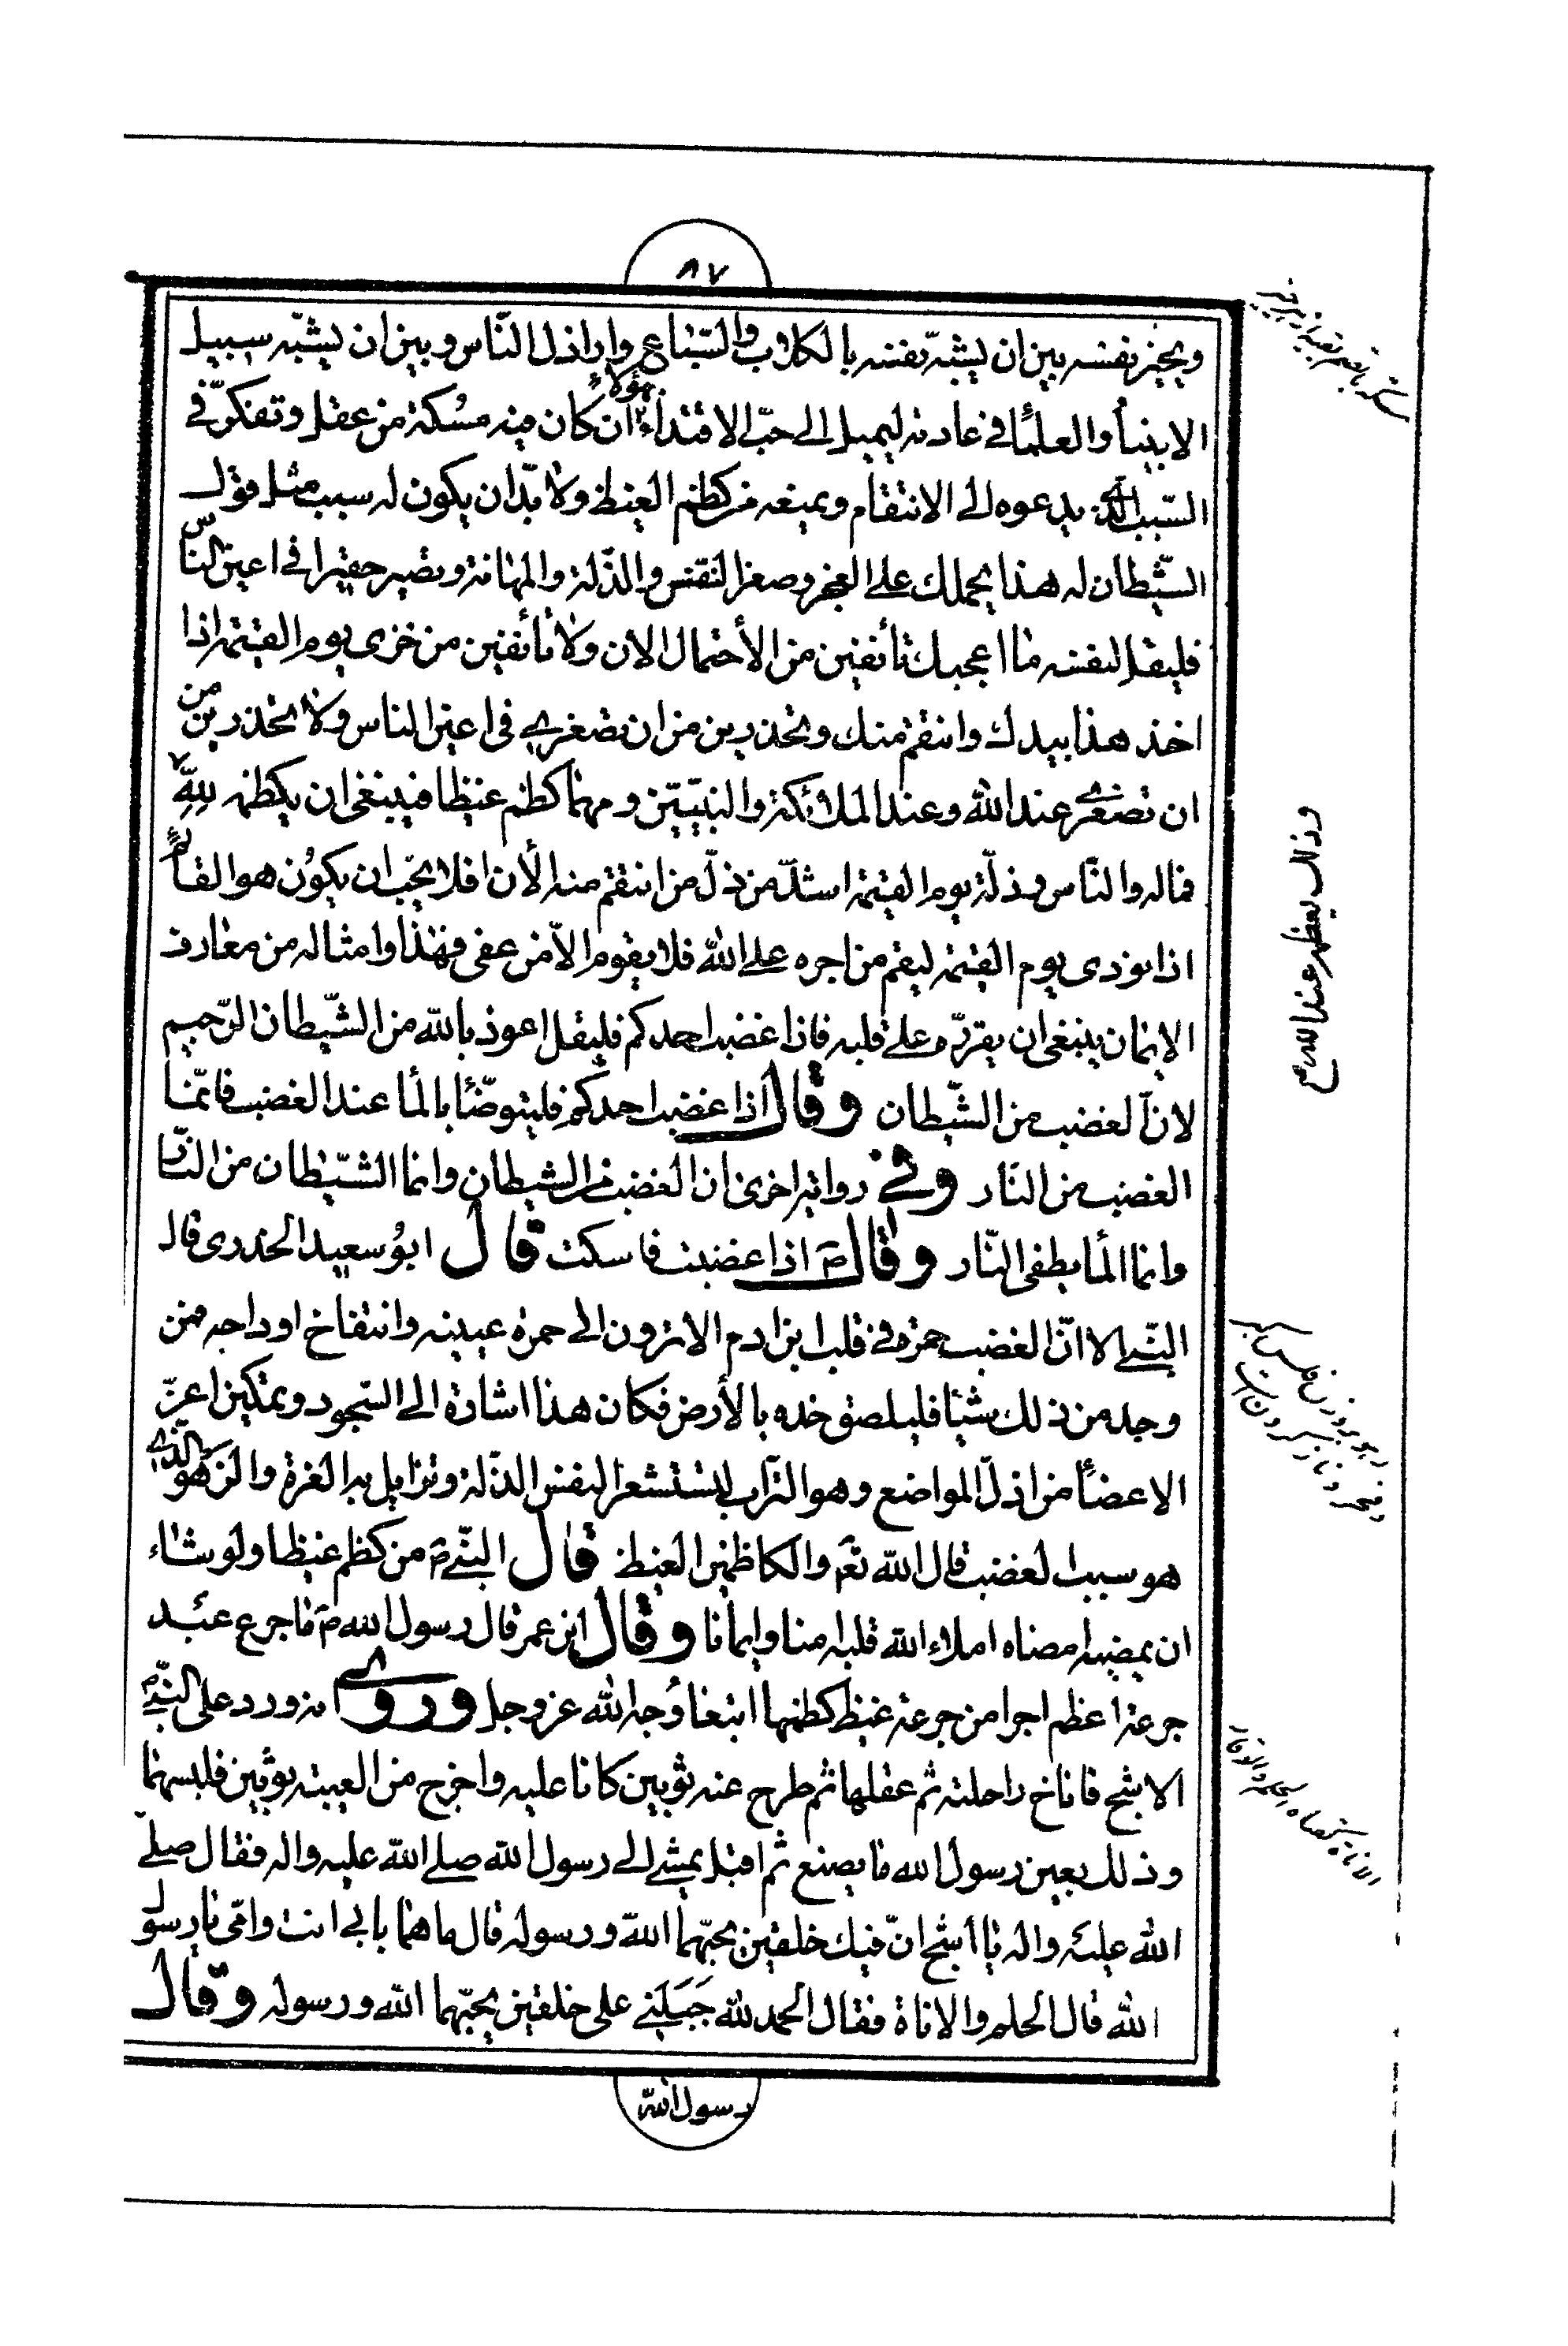 ٨٧
ويخير نفسه بين ان يشبّه نفسه بالكلاب والسّباع واراذل النّاس وبين ان يشبّه سبيل
الانبياء والعلماء في عادته ليميل الى حبّ الاقتداء بهؤلاء ان كان فيه مسكة من عقل وتفكّر في
السّبب الذي يدعوه الى الانتقام ويمنعه من كظم الغيظ ولا بدّ ان يكون له سبب مثل قول
الشّيطان له هذا يحملك على العجز وصغر النّفس والذّلة والمهانة وتصير حقيرا في اعين النّاس
فليقل لنفسه ما اعجبك تأنفين من الأحتمال الان ولا تأنفين من خزى يوم القيمة اذا
اخذ هذا بيدك وانتقم منك وتحذرين من ان تصغري في اعين الناس ولا تحذرين من
ان تصغري عند الله وعند الملائكة والنبيّين ومهما كظم غيظا فينبغي ان يكظمه للّه
فماله والنّاس وذلّة يوم القيمة اشدّ من ذلّ من انتقم منه الأن افلا يحبّ ان يكون هو القائم
اذا نودى يوم القيمة ليقم من اجره على الله فلا يقوم الاّ من عفى فهذا وامثاله من معارف
الايمان ينبغي ان يقرّره على قلبه فاذا غضب احدكم فليقل اعوذ بالله من الشّيطان الرّجيم
لانّ الغضب من الشّيطان وقال اذا غضب احدكم فليتوضّئا بالمأ عند الغضب فانّما
الغضب من النّار وفي رواية اخرى ان الغضب من الشيطان وانما الشّيطان من النّار
وانما المأ يطفى النّار وقال ص اذا غضبت فاسكت قال ابو سعيد الخدرى قال
النّبي الا انّ الغضب جمرة في قلب ابن ادم الا ترون الى حمرة عينيه وانتفاخ اوداجه فمن
وجد من ذلك شيئا فليلصق خده بالأرض فكان هذا اشارة الى السّجود وتمكين اعزّ
الاعضأ من اذلّ المواضع وهو التّراب ليستشعر النفس الذّلة وتزايل به الغرة والزهو الذي
هو سبب الغضب قال الله تع والكاظمين الغيظ قال النّبي ص من كظم غيظا ولو شاء
ان يمضيه امضاه املاء الله قلبه امنا وايمانا وقال ابن عمر قال رسول الله ص ما جرع عبد
جرعة اعظم اجرا من جرعة غيظ كظمها ابتغاء وجه الله عز وجل وروى انه ورد على النّبي ص
الاشج فاناخ راحلته ثم عقلها ثم طرح عنه ثوبين كانا عليه واخرج من العيبة ثوبين فلبسهما
وذلك بعين رسول الله ما يصنع ثم اقبل يمشى الى رسول الله صلى الله عليه واله فقال صلّى
الله عليه واله يا اشج انّ فيك خلقين يحبّهما الله ورسوله قال ما هما بابي انت وامّى يا رسول
الله قال الحلم والاناة فقال الحمد لله جَبَلَني على خلقين يحبّهما الله ورسوله وقال
رسول الله
وذلك يعظم عند الله